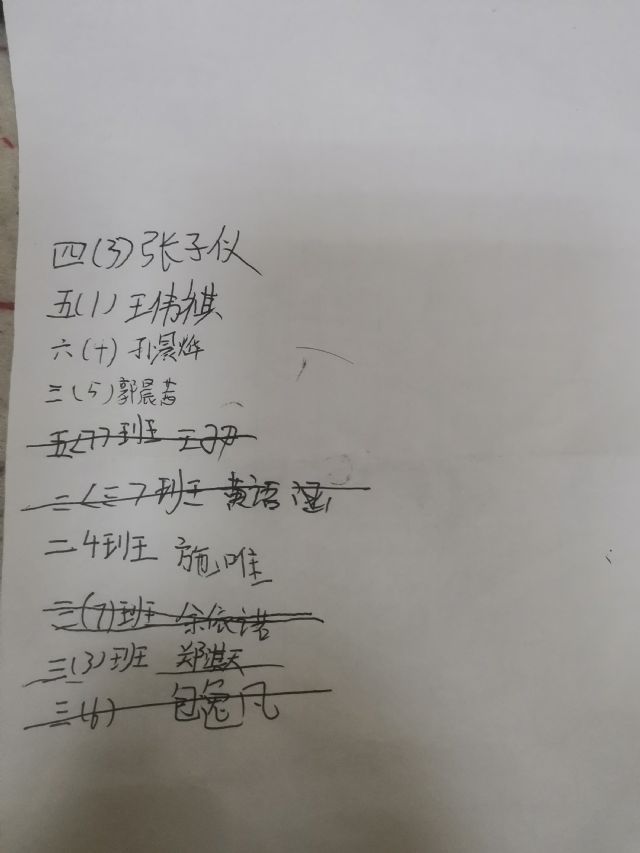 四(3)张子仪
五(1)王伟祺
六(十)孙晨烨
三(5)郭晨茜
五(7)班王
二(三)班黄语涵
二4班王施唯
三(7)班余依诺
三(3)班郑淇天
三(6)包冕凡